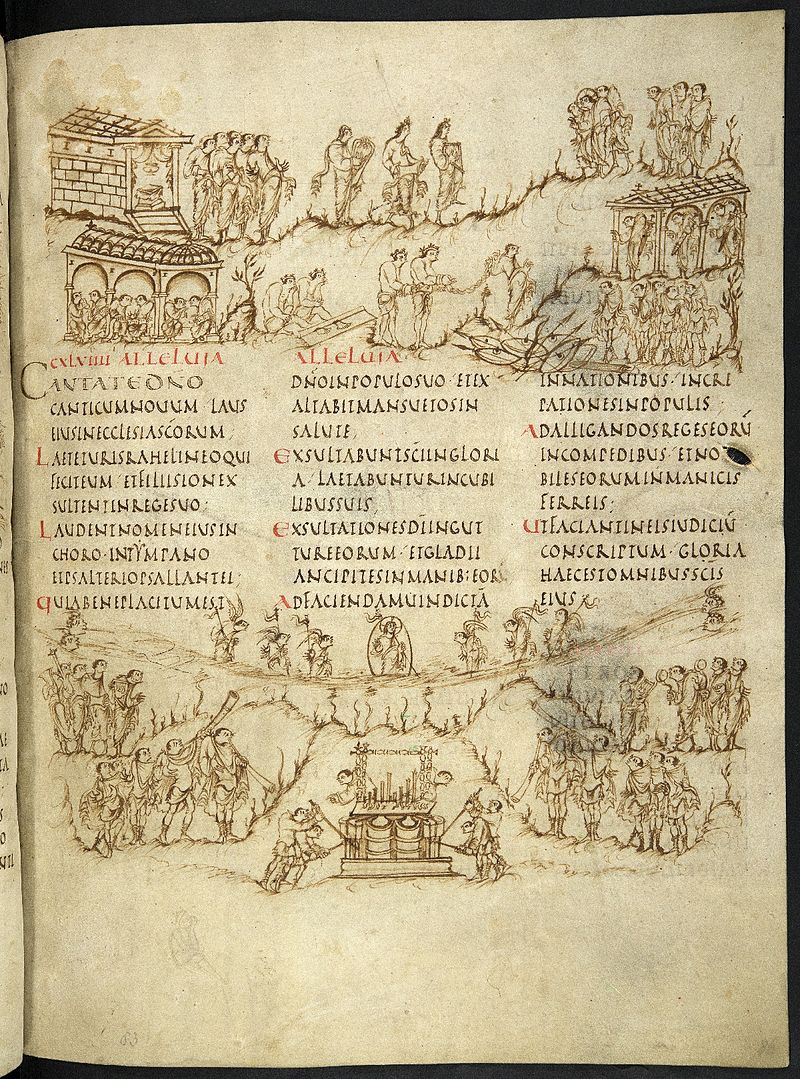 CXLVIIII ALLELUIA
CANTATE DNO
CANTICUM NOUUM · LAUS
EIUS IN ECCLESIA SCORUM;
LAETETUR ISRAHEL IN EO QUI
FECIT EUM · ET FILII SION EX
SULTENT IN REGE SUO;
LAUDENT NOMEN EIUS IN
CHORO · IN TYMPANO
ET PSALTERIO PSALLANT EI;
QUIA BENEPLACITUM EST
ALLELUIA
DNO IN POPULO SUO · ET EX
ALTABIT MANSUETOS IN
SALUTE;
EXSULTABUNT SCI IN GLORI
A · LAETABUNTUR IN CUBI
LIBUS SUIS;
EXSULTATIONES DI IN GUT
TURE EORUM · ET GLADII
ANCIPITES IN MANIB: EORŪ
AD FACIENDAM UINDICTĀ
IN NATIONIBUS · INCRE
PATIONES IN POPULIS;
AD ALLIGANDOS REGES EORŪ
IN COMPEDIBUS · ET NO
BILES EORUM IN MANICIS
FERREIS;
UT FACIANT IN EIS IUDICIŪ
CONSCRIPTUM · GLORIA
HAEC EST OMNIBUS SCIS
EIUS
83